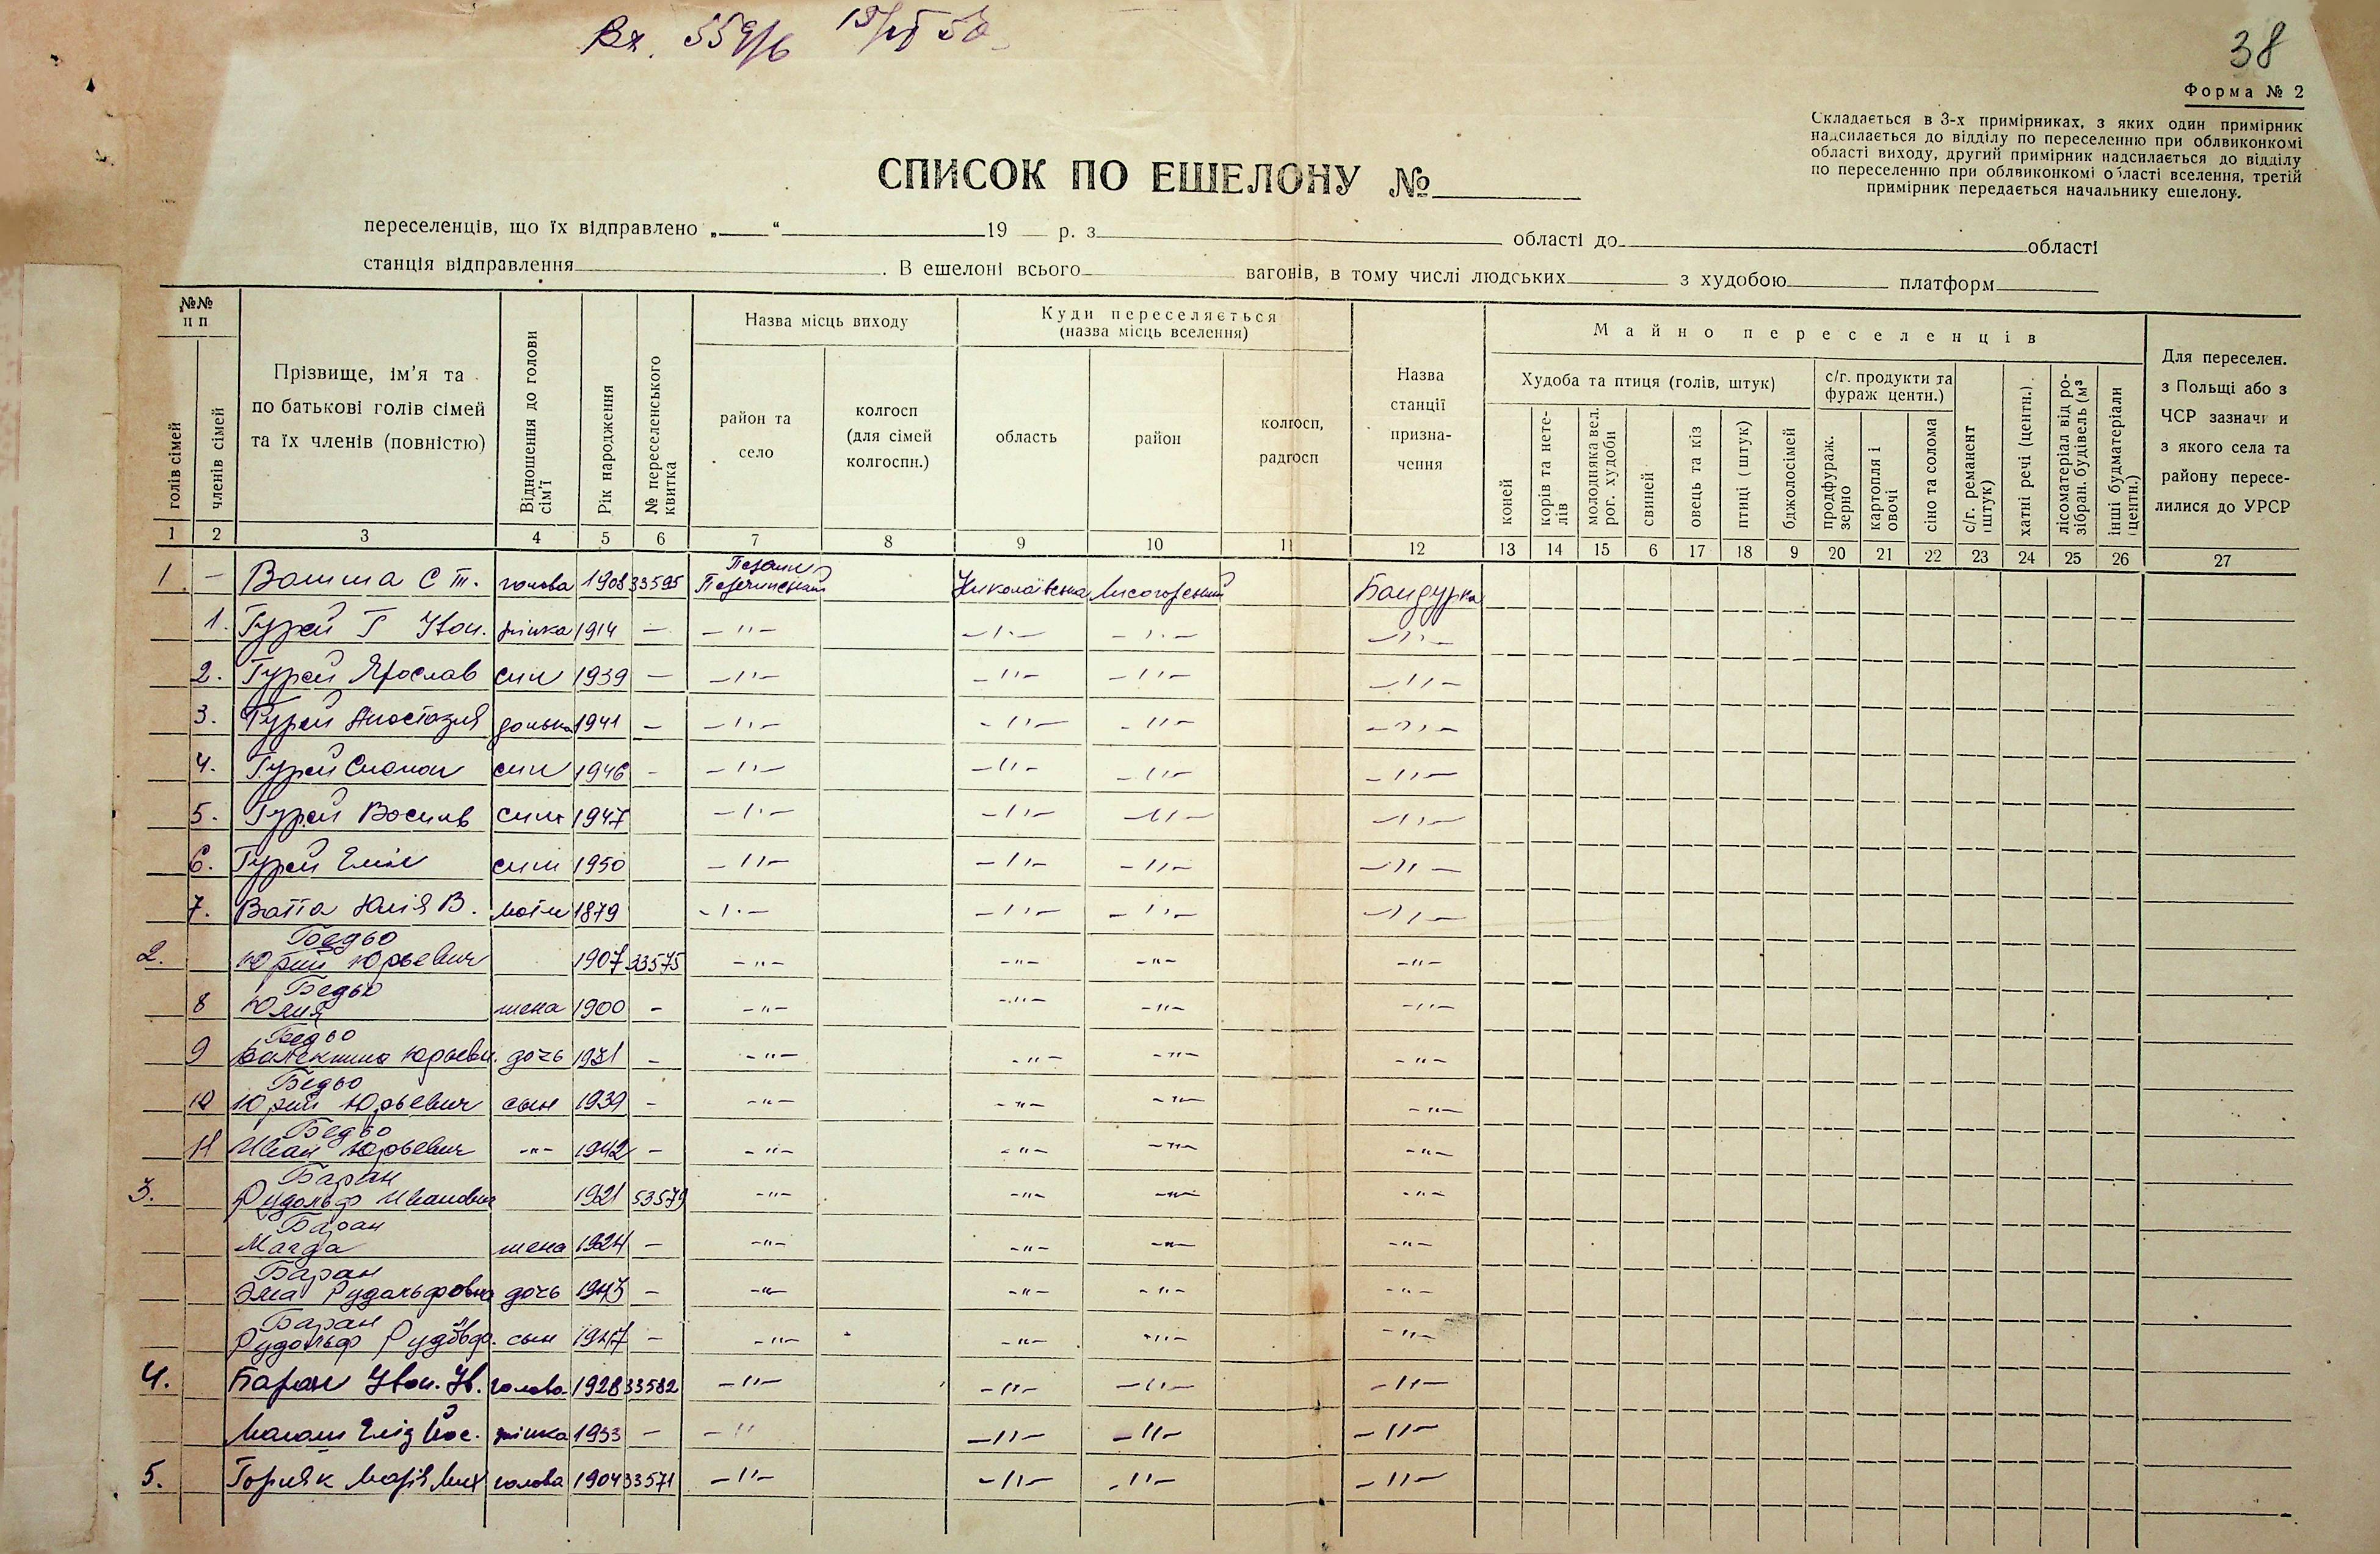 Вх. 559/6 15/VI 53
38
Форма № 2
Складається в 3-х примірниках, з яких один примірник
надсилається до відділу по переселенню при облвиконкомі
області виходу, другий примірник надсилається до відділу
по переселенню при облвиконкомі області вселення, третій
примірник передається начальнику ешелону.
СПИСОК ПО ЕШЕЛОНУ №
переселенців, що їх відправлено „ “ 19 р. з області до області
станція відправлення . В ешелоні всього вагонів, в тому числі людських з худобою платформ
№№ п п
голів сімей
членів сімей
Прізвище, ім'я та по батькові голів сімей та їх членів (повністю)
Відношення до голови сім'ї
Рік народження
№ переселенського квитка
Назва місць виходу
район та село
колгосп (для сімей колгоспн.)
Куди переселяється (назва місць вселення)
область
район
колгосп, радгосп
Назва станції призна-чення
Майно переселенців
Худоба та птиця (голів, штук)
коней
корів та нете-лів
молодняка вел. рог. худоби
свиней
овець та кіз
птиці (штук)
бджолосімей
с/г. продукти та фураж центн.)
продфураж. зерно
картопля і овочі
сіно та солома
с/г. реманент (штук)
хатні речі (центн.)
лісоматеріал від ро-зібран. будівель (м³
інші будматеріали (центн.)
Для переселен. з Польщі або з ЧСР зазначи и з якого села та району пересе-лилися до УРСР
1 2 3 4 5 6 7 8 9 10 11 12 13 14 15 6 17 18 9 20 21 22 23 24 25 26 27
1. — С Т. голова 1908 33595 Миколаївська Лисогорський Бандурка
1. Гурей Г Іван. жінка 1914 — —"— —"— —"— —"—
2. Гурей Ярослав син 1939 — —"— —"— —"— —"—
3. Гурей Анастазія донька 1941 — —"— —"— —"— —"—
4. Гурей Степан син 1946 — —"— —"— —"— —"—
5. Гурей Василь син 1947 —"— —"— —"— —"—
6. Гурей Еміл син 1950 —"— —"— —"— —"—
7. Юлія В. мати 1879 —"— —"— —"— —"—
2. Бедьо Юрий Юрьевич 1907 33575 —"— —"— —"— —"—
8 Бедьо Юлия жена 1900 — —"— —"— —"— —"—
9 Бедьо Валентина Юрьевн. дочь 1931 — —"— —"— —"— —"—
10 Бедьо Юрий Юрьевич сын 1939 — —"— —"— —"— —"—
11 Бедьо Иван Юрьевич —"— 1942 — —"— —"— —"— —"—
3. Баран Рудольф Иванович 1921 53579 —"— —"— —"— —"—
Баран Магда жена 1924 — —"— —"— —"— —"—
Баран Эма Рудольфовна дочь 1945 — —"— —"— —"— —"—
Баран Рудольф сын 1947 — —"— —"— —"— —"—
4. Баран Іван. Ів. голова 1928 33582 —"— —"— —"— —"—
Єліз Йос. жінка 1933 — —"— —"— —"— —"—
5. Горняк Марія Мих голова 1904 33571 —"— —"— —"— —"—